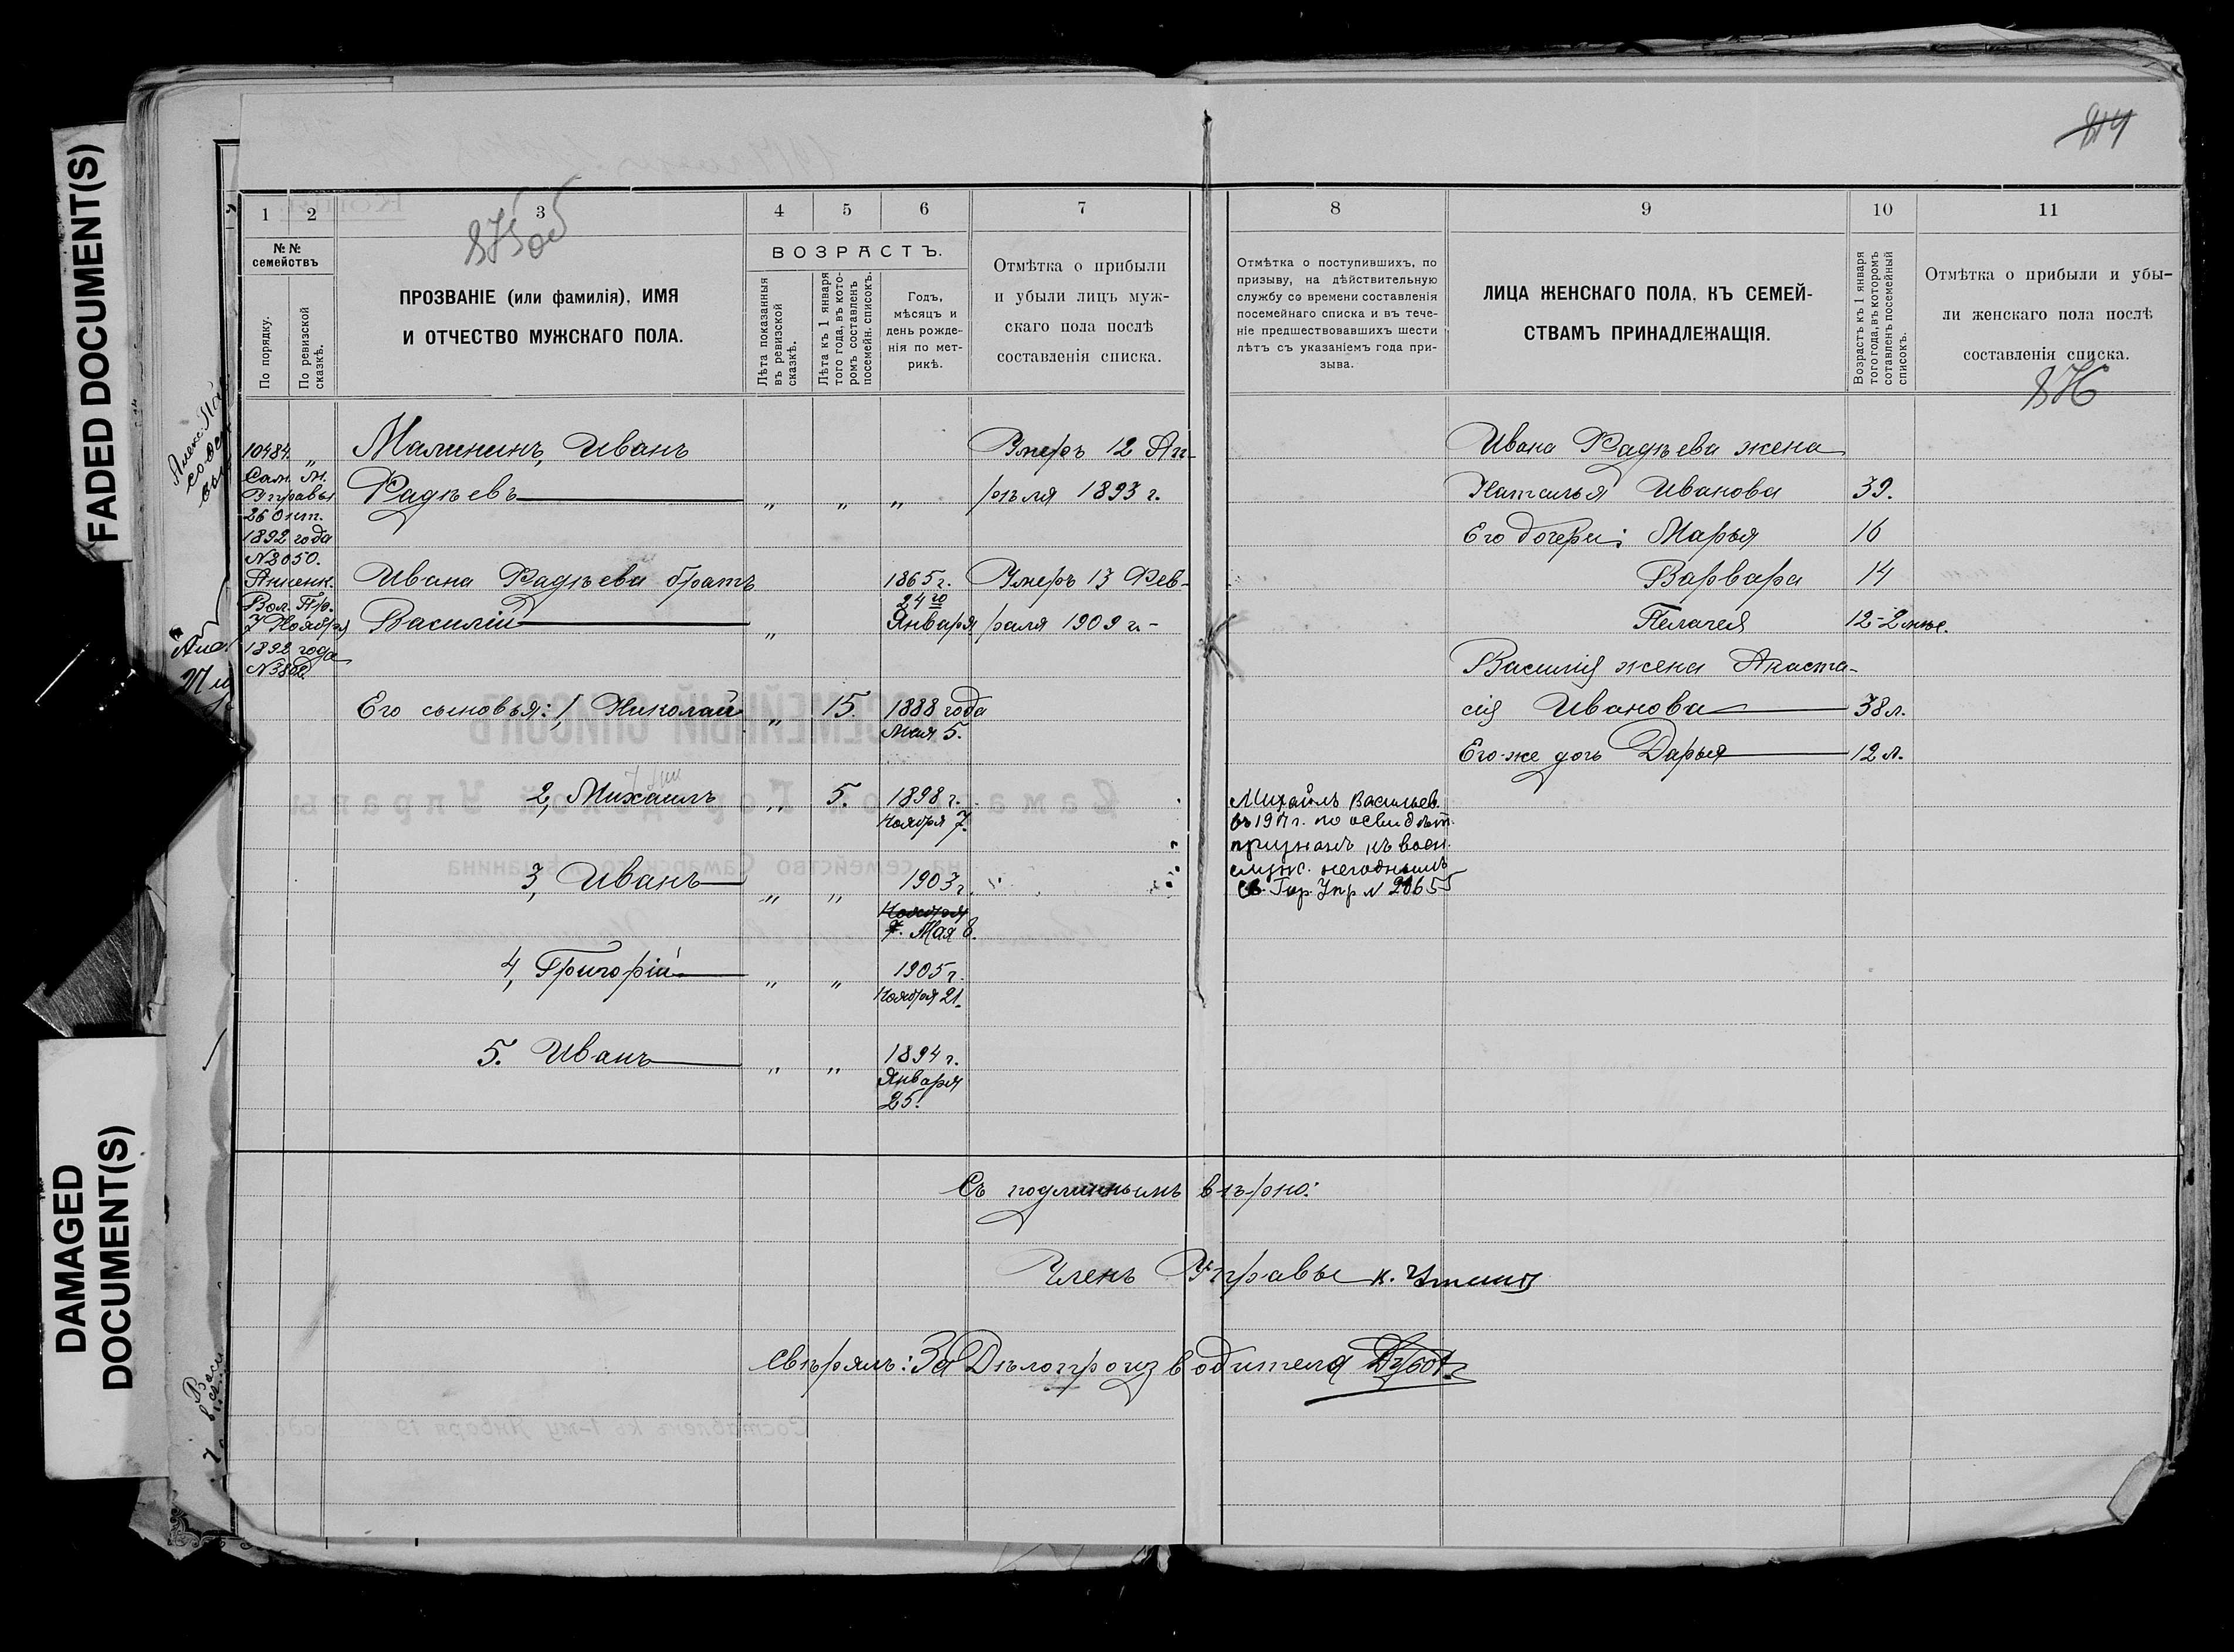 FADED DOCUMENT(S)
DAMAGED
DOCUMENT(S)
814
1
2
3
4
5
6
7
8
9
10
11
875 об
876
№ №
семействъ
По порядку.
По ревизской
сказкѣ.
ПРОЗВАНІЕ (или фамилія), ИМЯ
И ОТЧЕСТВО МУЖСКАГО ПОЛА.
ВОЗРАСТЪ.
Лѣта показанныя
въ ревизской
сказкѣ.
Лѣта къ 1 января
того года, въ кото-
ромъ составленъ
посемейн. списокъ.
Годъ,
мѣсяцъ и
день рожде-
нія по мет-
рикѣ.
Отмѣтка о прибыли
и убыли лицъ муж-
скаго пола послѣ
составленія списка.
Отмѣтка о поступившихъ, по
призыву, на дѣйствительную
службу со времени составленія
посемейнаго списка и въ тече-
ніе предшествовавшихъ шести
лѣтъ съ указаніемъ года при-
зыва.
ЛИЦА ЖЕНСКАГО ПОЛА, КЪ СЕМЕЙ-
СТВАМЪ ПРИНАДЛЕЖАЩІЯ.
Возрастъ къ 1 января
того года, въ которомъ
сотавленъ посемейный
списокъ.
Отмѣтка о прибыли и убы-
ли женскаго пола послѣ
составленія списка.
10484. "
Сам. М.
Управы
26 Окт.
1892 года
№ 2050.
Аненк.
Вол. Пр.
7 Ноября
1892 года
Малининъ, Иванъ
Фадѣевъ " " "
Умеръ 12 Ап-
рѣля 1893 г.
Ивана Фадѣева братъ
Василій "
1865 г.
24го
Января
Умеръ 13 Фев-
раля 1909 г.-
Его сыновья: 1, Николай " 15. 1888 года
Мая 5.
2, Михаилъ " 5. 1898 г.
Ноября 7.
3, Иванъ " " 1903 г.
Ноября
7. Мая 8.
4, Григорій " " 1905 г.
Ноября 21.
5. Иванъ " " 1894 г.
Января
25.
Михаилъ Васильев.
въ 1917 г. по освидѣт.
признанъ къ воен.
служ. негоднымъ
Св. Гор. Упр № 20655
Ивана Фадѣева жена
Наталья Иванова 39.
Его дочери: Марья 16
Варвара 14
Пелагея 12-2 мѣс.
Василія жена Анаста-
сія Иванова 38 л.
Его-же дочь Дарья 12 л.
Съ подлиннымъ вѣрно:
Членъ Управы
Свѣрялъ: За Дѣлопроизводителя